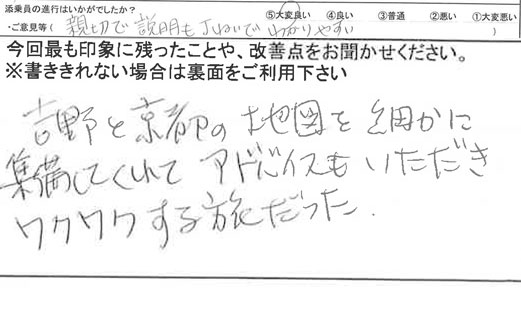 添乗員の進行はいかがでしたか? ⑤大変良い ④良い ③普通 ②悪い ①大変悪い
・ご意見等( 親切で説明も丁ねいでわかりやすい )
今回最も印象に残ったことや、改善点をお聞かせください。
※書ききれない場合は裏面をご利用下さい
吉野と京都の地図を細かに
集満してくれて アドバイスもいただき
ワクワクする旅だった.